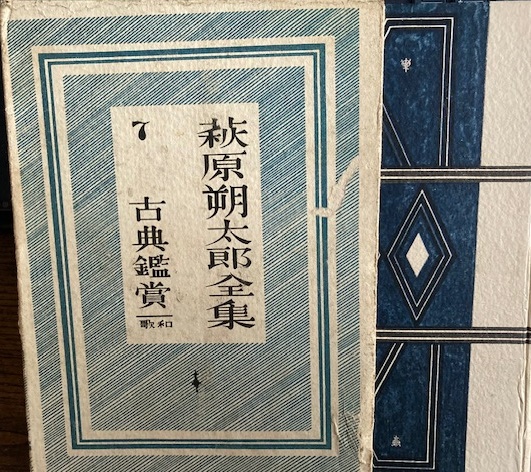 萩原朔太郎全集
7
古典鑑賞
和歌